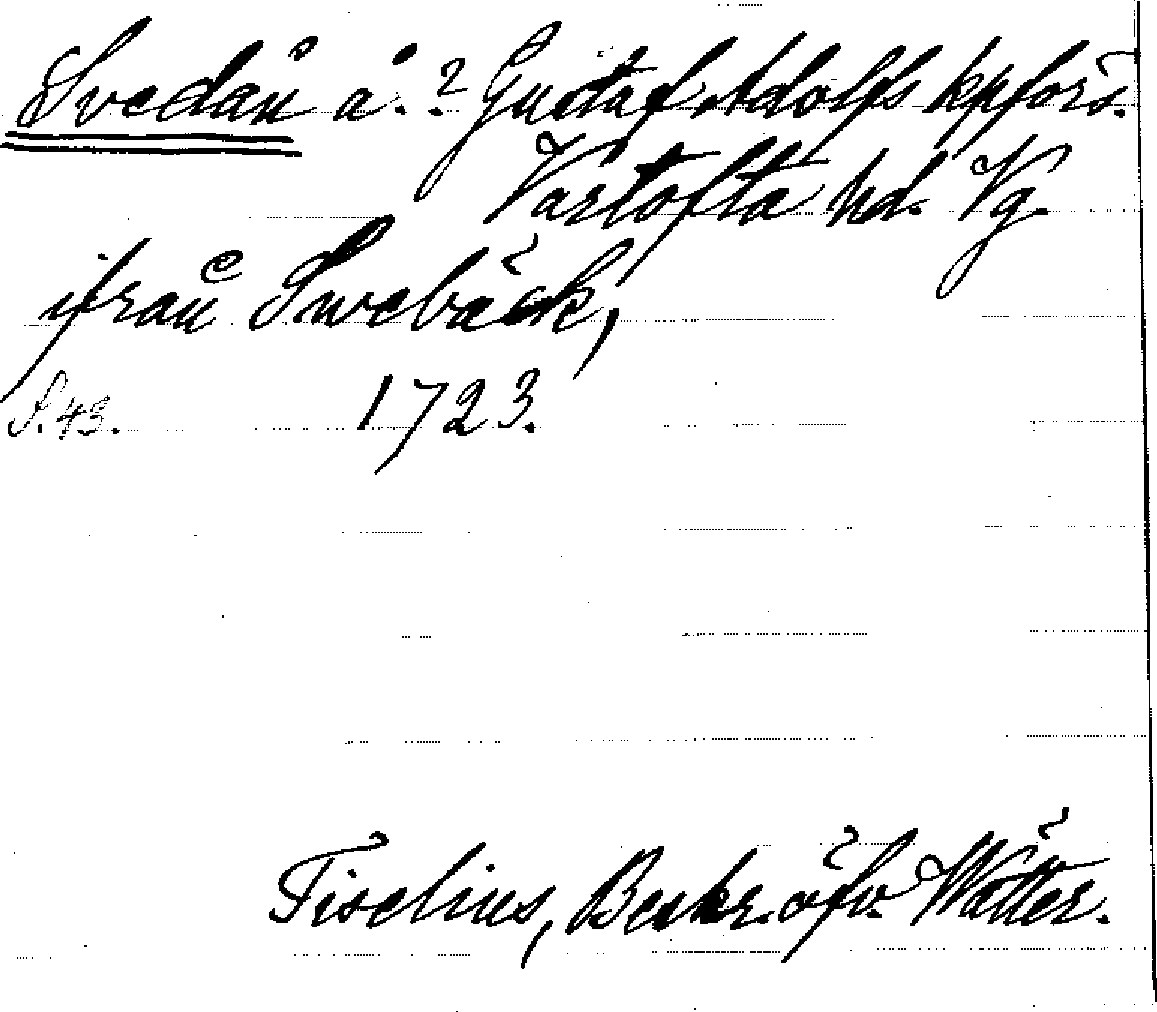 Svedån å.? Gustaf Adolfs kpförs.
Vartofta hd. Vg.
ifrån Swebäck,
S. 43. 1723.
Tiselius, Beskr. öfv. Wätter.